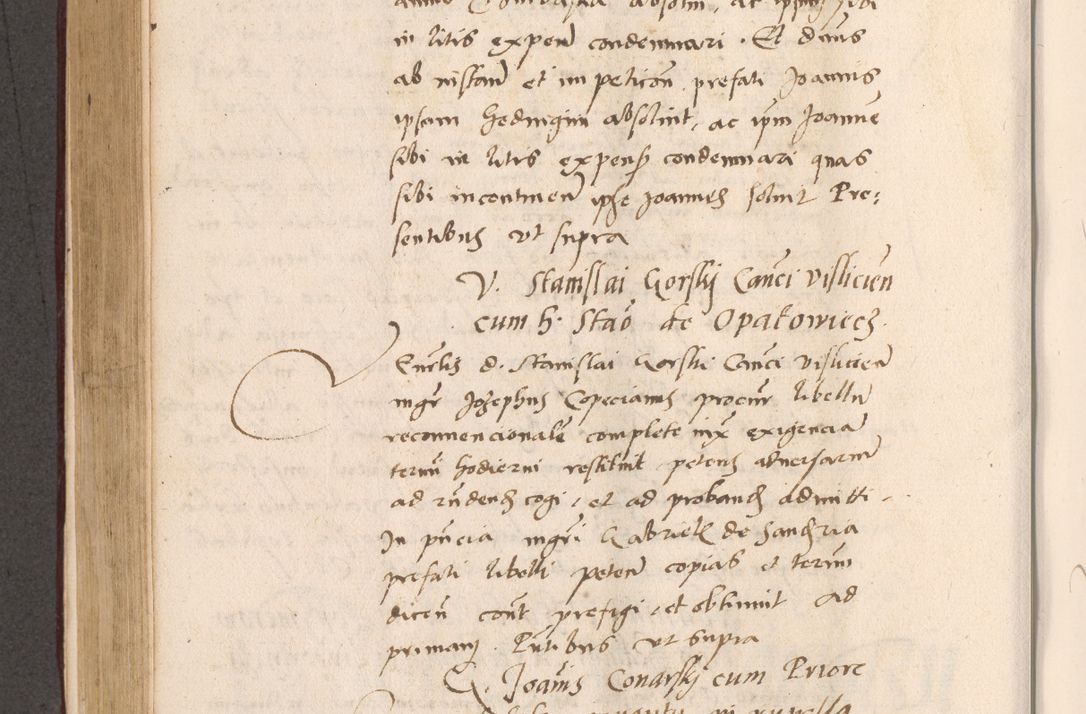 in litis expen condemnari. Et dnus
ab instan et impeticon prefati Joannis
ipsam Hedvigim absolvit, ac ipm Joanne
sibi in litis expens condemnari quas
sibi incontinen ipse Joannes solvit Pre:
sentibus ut supra
V. Stanislai Gorskij Canci Visliciēn
cum h. Stao de Opatowiecz.
Venelis d. Stanislai Gorski Canci Vislicien
mgr Josephus Copecianus procur libellu
reconvencionale complete iux exigencia
termi hodierni restituit petens adversarium
ad rndend cogi, et ad proband admitti.
In pncia mgri Gabriel de Sandria
prefati libelli peten copias et termi
dicen cont prefigi, et obtinuit ad
primam Pntibus ut supra
Joanis Conarskj cum Priore